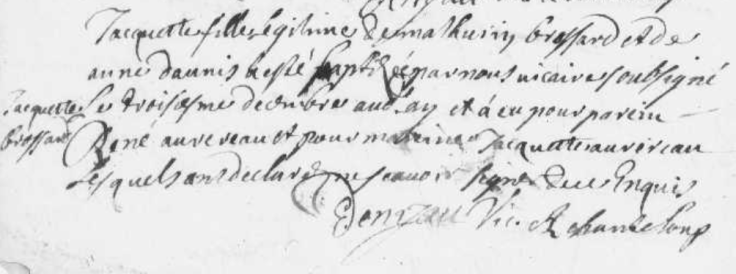 Jacquette fille legitime de mathurin brossard et de
anne daunis a esté baptisée par nous vicaire soubsigné
Jacquette
brossard
le troisiesme decembre audit an et a eu pour parein
René auvereau et pour mareine Jacquette auvereau
lesquels ont declaré ne scavoir signer de ce Enquis
Vic. de chanteloup